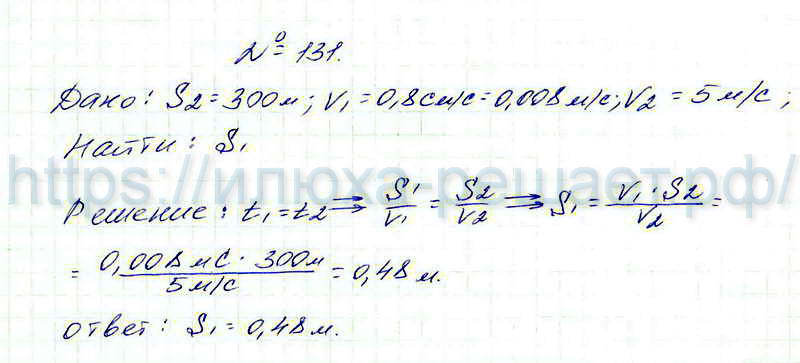 № 131.
Дано: S2 = 300м; V1 = 0,8см/с = 0,008м/с; V2 = 5м/с;
Найти: S1
https://илюха-решает.рф/
Решение: t1 = t2 ⇒ S1/V1 = S2/V2 ⇒ S1 = V1·S2/V2 =
= 0,008 мс · 300м / 5м/с = 0,48 м.
ответ: S1 = 0,48м.